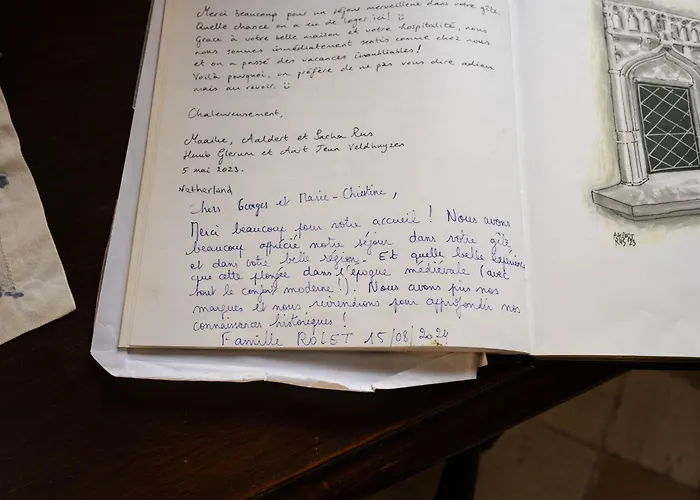 Merci beaucoup pour un séjour merveilleux dans votre gîte.
Quelle chance on a eu de loger ici! :)
Grâce à votre belle maison et votre hospitalité, nous
nous sommes immédiatement sentis comme chez nous
et on a passé des vacances inoubliables!
Voilà pourquoi, on préfère de ne pas vous dire adieu
mais au revoir. :)
Chaleureusement,
Maaike, Aaldert et Sacha Rus
Huub Glerum et Aart Jeun Veldhuyzen
5 mai 2023.
Netherland
Chers Georges et Marie-Christine,
Merci beaucoup pour votre accueil! Nous avons
beaucoup apprécié notre séjour dans votre gîte
et dans votre belle région. Et quelle belle expérience
que cette plongée dans l'époque médiévale (avec
tout le confort moderne!). Nous avons pris nos
marques et nous reviendrons pour approfondir nos
connaissances historiques!
Famille ROLET 15/08/2024
RUS '23